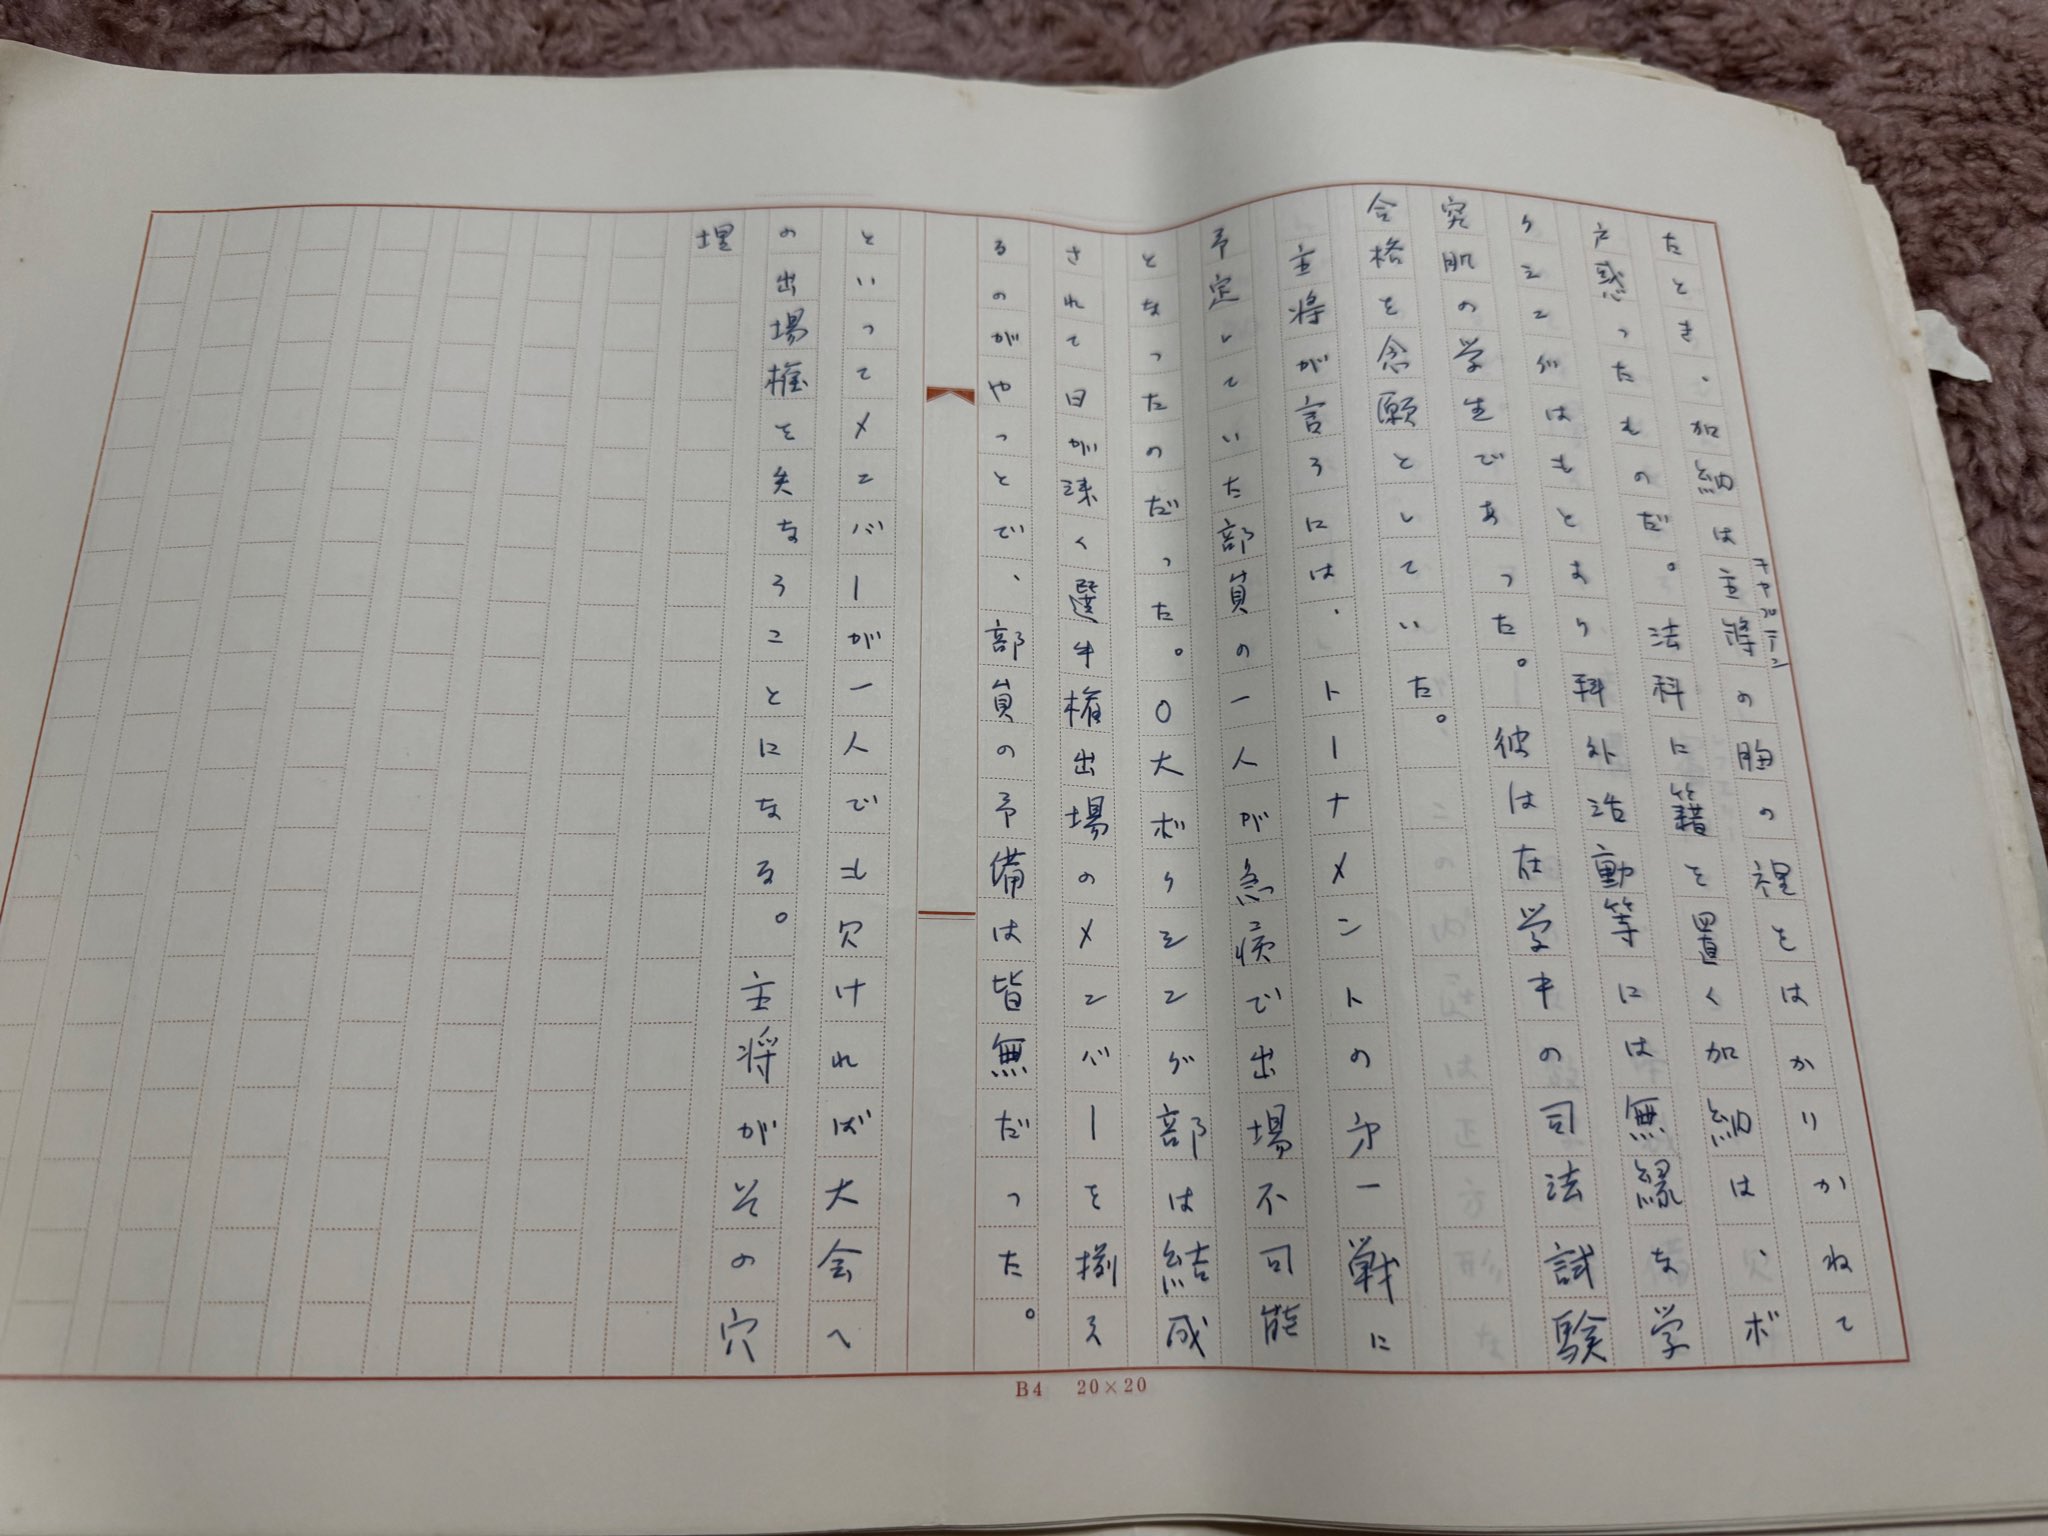 たとき、加納は主将の胸の裡をはかりかねて
キャプテン
戸惑ったものだ。法科に籍を置く加納は、ボ
クシングはもとより科外活動等には無縁な学
究肌の学生であった。彼は在学中の司法試験
合格を念願としていた。
主将が言うには、トーナメントの㐧一戦に
予定していた部員の一人が急病で出場不可能
となったのだった。〇大ボクシング部は結成
されて日が浅く選手権出場のメンバーを揃え
るのがやっとで、部員の予備は皆無だった。
といってメンバーが一人でも欠ければ大会へ
の出場権を失なうことになる。主将がその穴
埋
B4 20×20